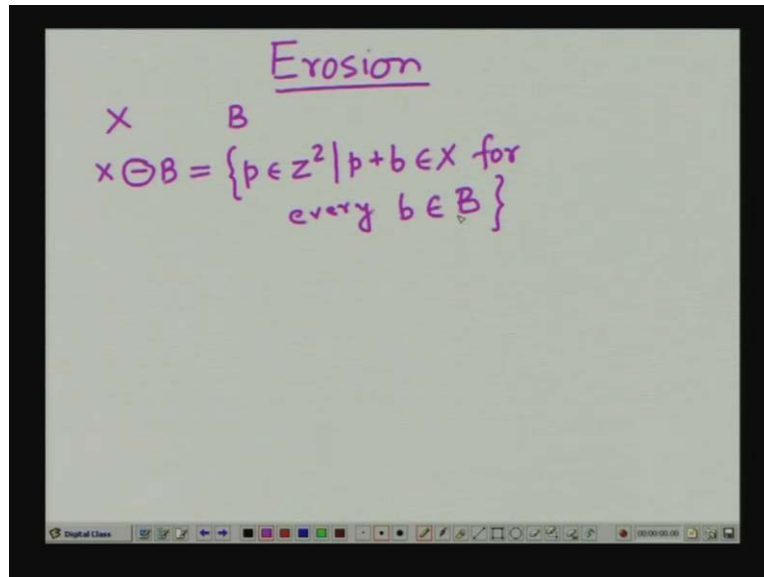 Erosion
X B
X ⊖ B = {p ∈ Z² | p + b ∈ X for
every b ∈ B}
Digital Class 00:00:00.00